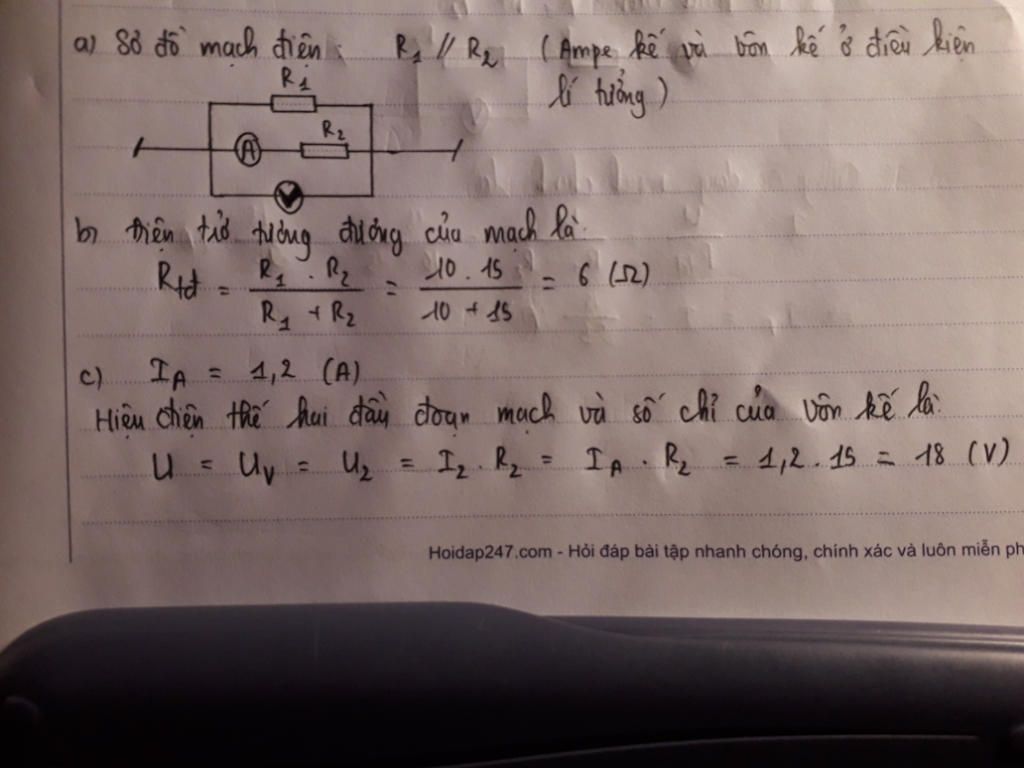 a) Sơ đồ mạch điện: R1 // R2 (Ampe kế và vôn kế ở điều kiện
lí tưởng)
R1
A R2
V
b) Điện trở tương đương của mạch là:
Rtđ = R1 . R2 / R1 + R2 = 10 . 15 / 10 + 15 = 6 (Ω)
c) IA = 1,2 (A)
Hiệu điện thế hai đầu đoạn mạch và số chỉ của vôn kế là:
U = UV = U2 = I2 . R2 = IA . R2 = 1,2 . 15 = 18 (V)
Hoidap247.com - Hỏi đáp bài tập nhanh chóng, chính xác và luôn miễn ph